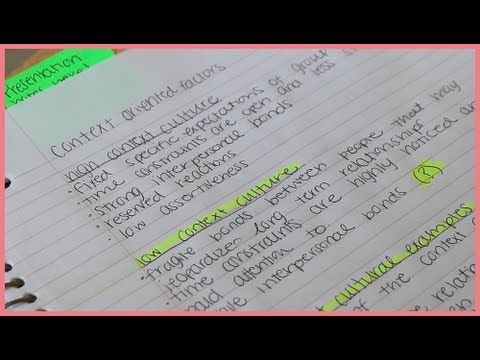 Presentation
context oriented factors
high context culture
• fixed specific expectations of group
• time constraints are open and less
• strong interpersonal bonds
• reserved reactions
• low assertiveness
low context culture
• fragile bonds between people that may
jeopardize long term relationships
• time constraints are highly noticed and
paid attention to
interpersonal bonds (?)
cultural examples
of the context